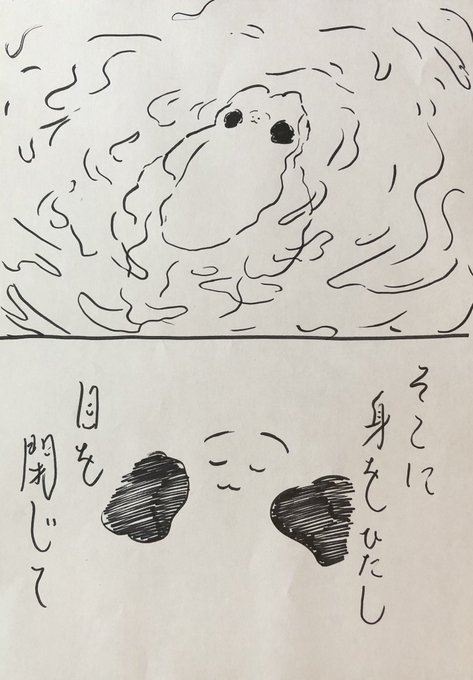 そこに
身をひたし
目を
閉じて